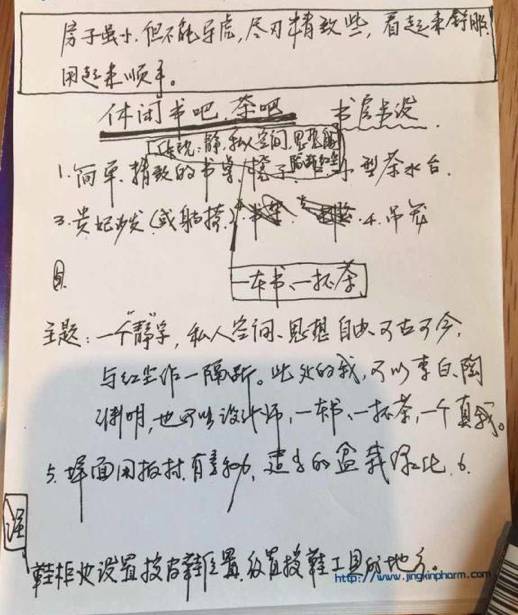 房子虽小,但不能马虎,尽力精致些,看起来舒服
用起来顺手。
休闲书吧、茶吧 书房书设
传说:静、私人空间、思想
1.简单、精致的书桌 椅子 小型茶水台.
3.贵妃沙发(或躺椅) 4.吊篮
一本书、一杯茶
主题:一个"静"字,私人空间、思想自由、可古可今,
与红尘作一隔断。此处的我,可以李白、陶
渊明,也可以设计师,一本书、一杯茶,一个真我。
5.墙面用板材 有 的盆栽绿化.6.
鞋柜处设置换鞋位置,放置擦鞋工具的地方。
http://www.jingxinpharm.com